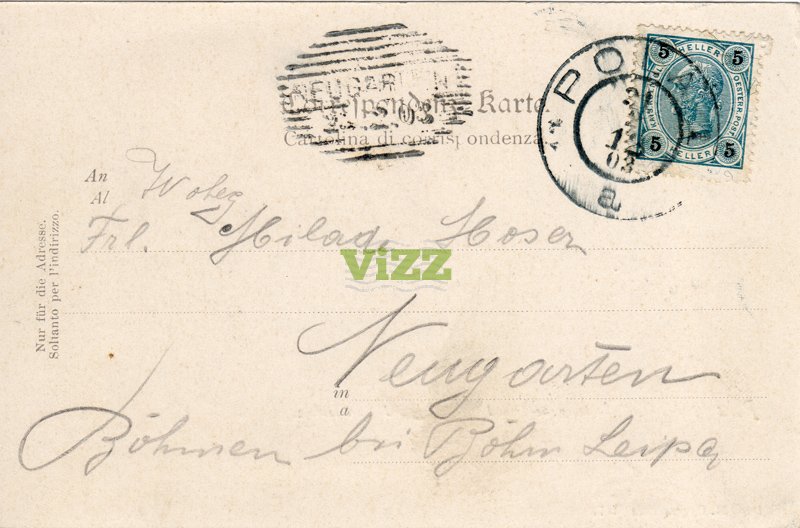 NEUGARTEN
03
Correspondenz-Karte.
Cartolina di corrispondenza.
POLA
1
03
a
5 HELLER 5
5 HELLER 5
An
Al
Wohlg.
Frl. Milada Moser
ViZZ
Nur für die Adresse.
Soltanto per l'indirizzo.
in
a
Neugarten
Böhmen bei Böhm Leipa